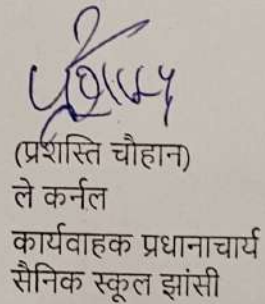 (प्रशस्ति चौहान)
ले कर्नल
कार्यवाहक प्रधानाचार्य
सैनिक स्कूल झांसी